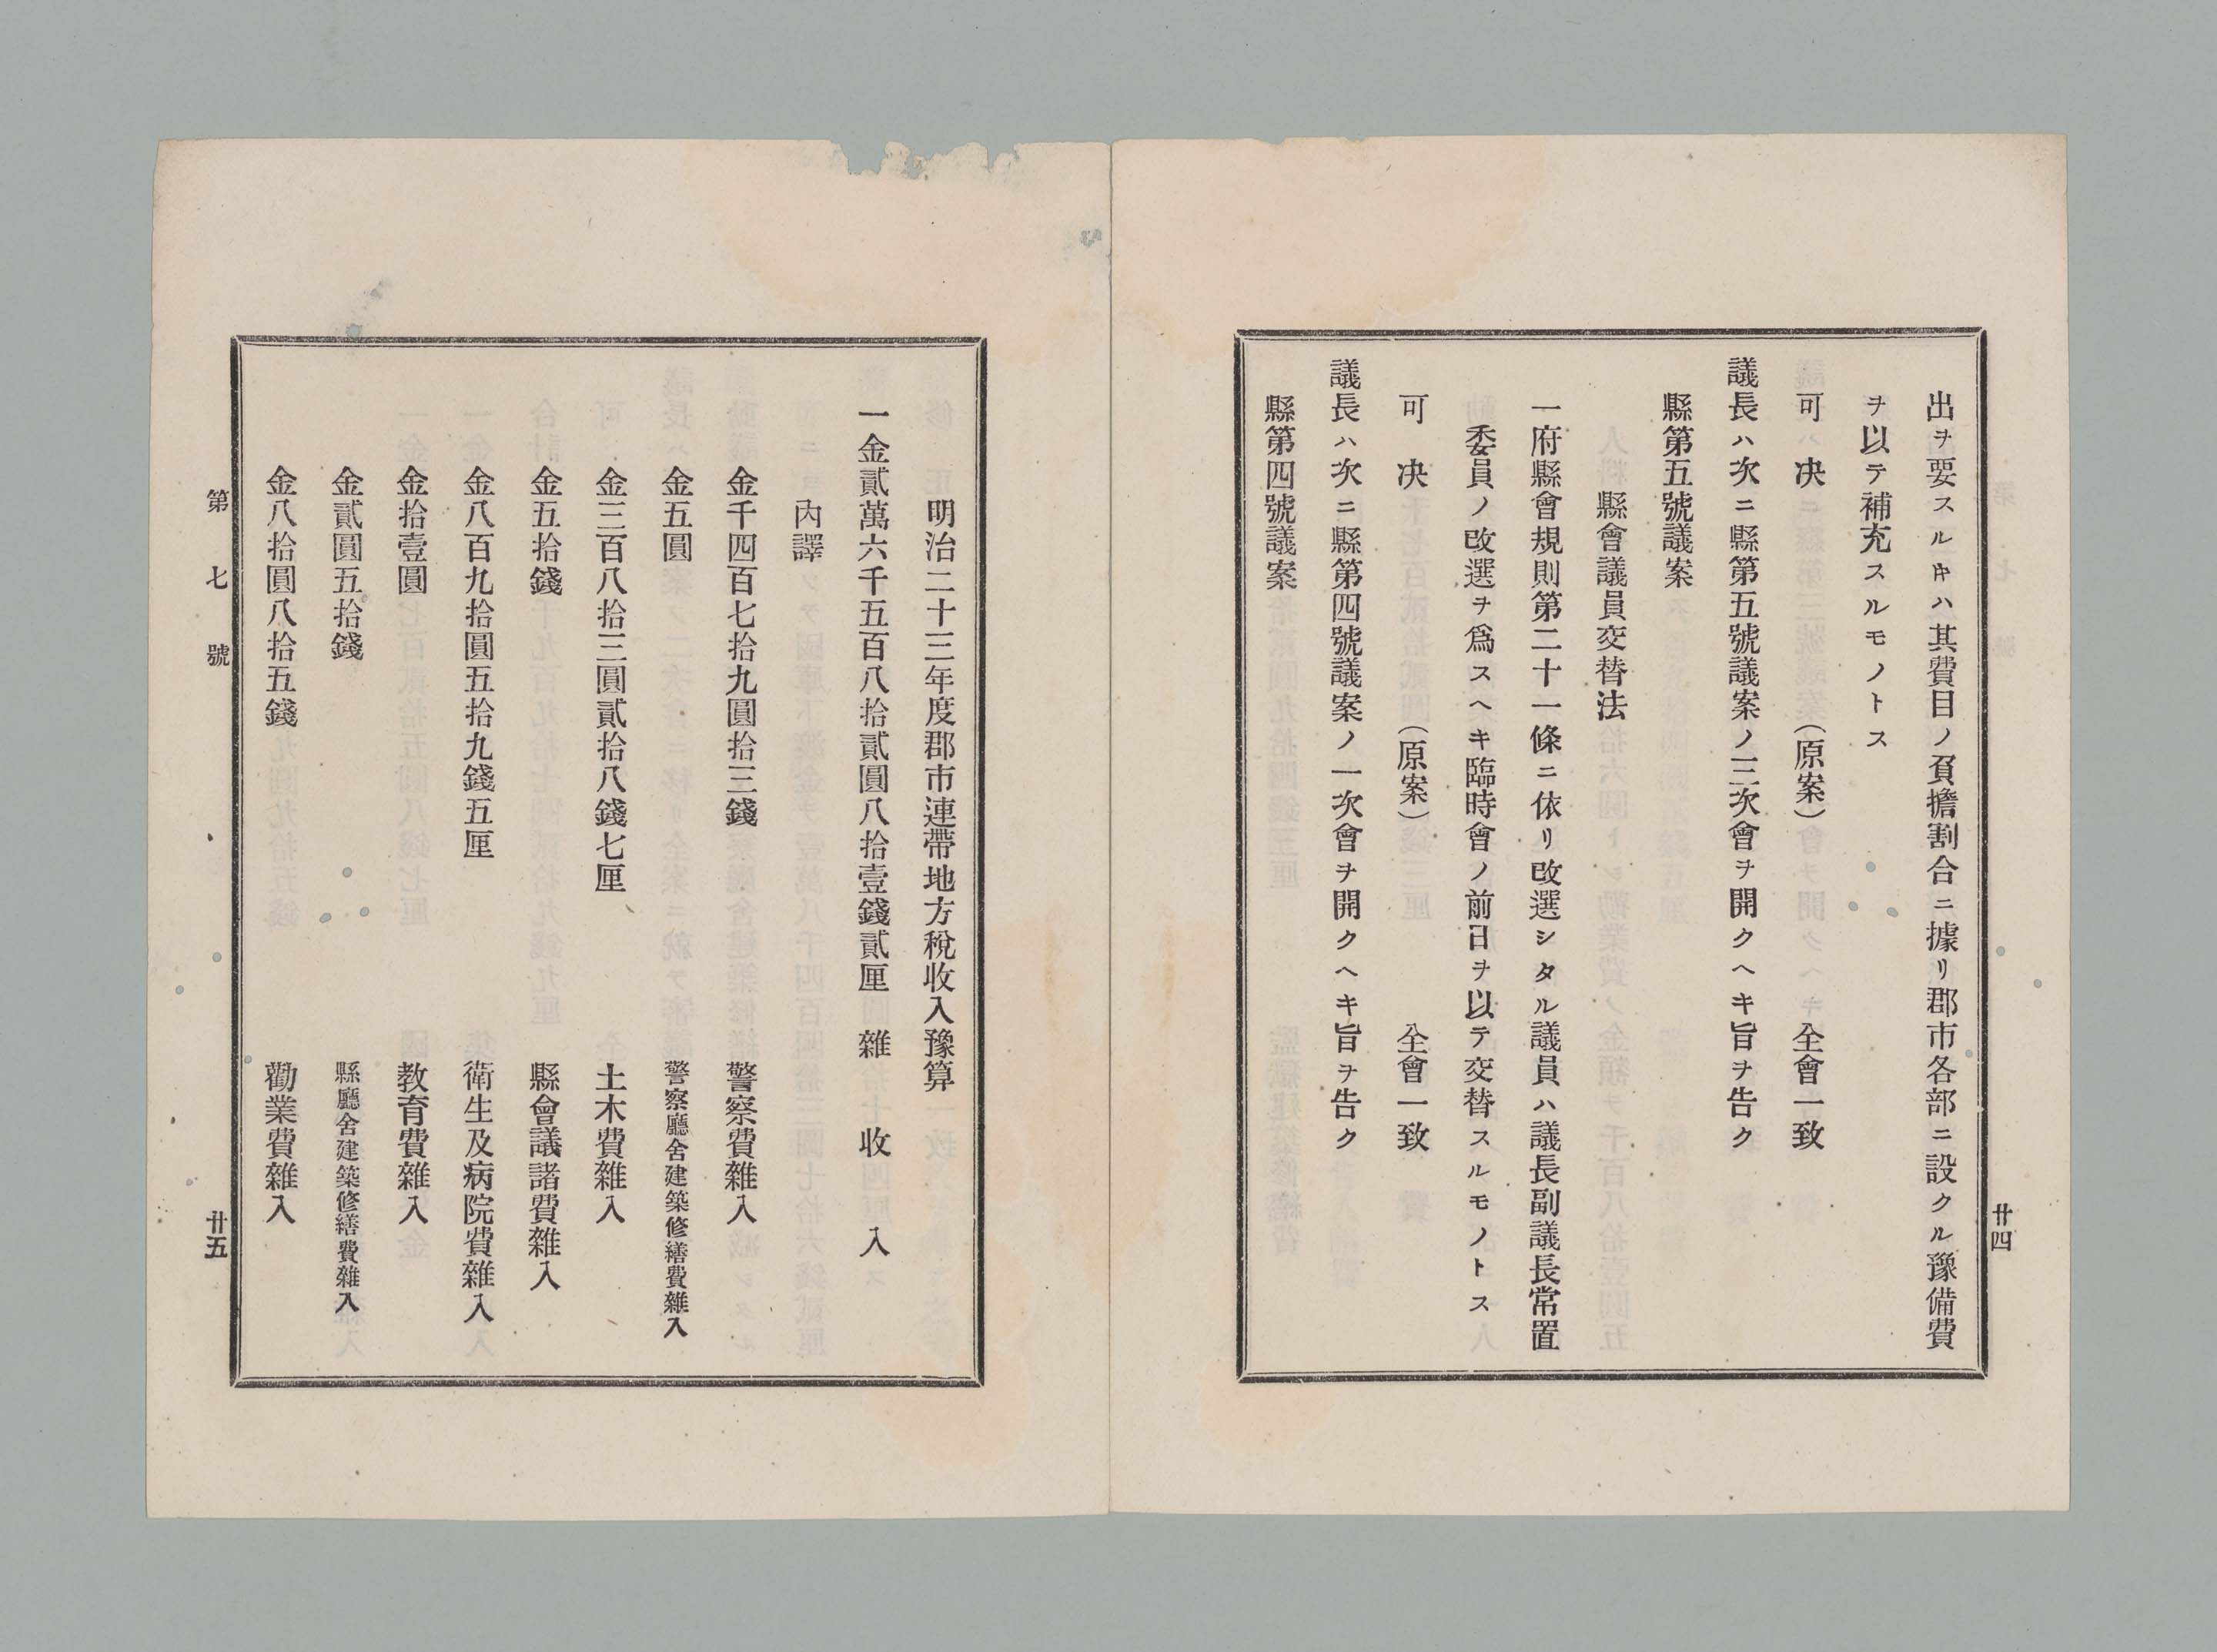 廿四
出ヲ要スルキハ其費目ノ負擔割合ニ據リ郡市各部ニ設クル豫備費
ヲ以テ補充スルモノトス
可　决　（原案）　全會一致
議長ハ次ニ縣第五號議案ノ三次會ヲ開クヘキ旨ヲ告ク
縣第五號議案
縣會議員交替法
一府縣會規則第二十一條ニ依リ改選シタル議員ハ議長副議長常置
委員ノ改選ヲ爲スヘキ臨時會ノ前日ヲ以テ交替スルモノトス
可　决　（原案）　全會一致
議長ハ次ニ縣第四號議案ノ一次會ヲ開クヘキ旨ヲ告ク
縣第四號議案
明治二十三年度郡市連帶地方稅收入豫算
一金貳萬六千五百八拾貳圓八拾壹錢貳厘　雜　收　入
內譯
金千四百七拾九圓拾三錢　警察費雜入
金五圓　警察廳舍建築修繕費雜入
金三百八拾三圓貳拾八錢七厘　土木費雜入
金五拾錢　縣會議諸費雜入
金八百九拾圓五拾九錢五厘　衛生及病院費雜入
金拾壹圓　教育費雜入
金貳圓五拾錢　縣廳舍建築修繕費雜入
金八拾圓八拾五錢　勸業費雜入
第七號　廿五